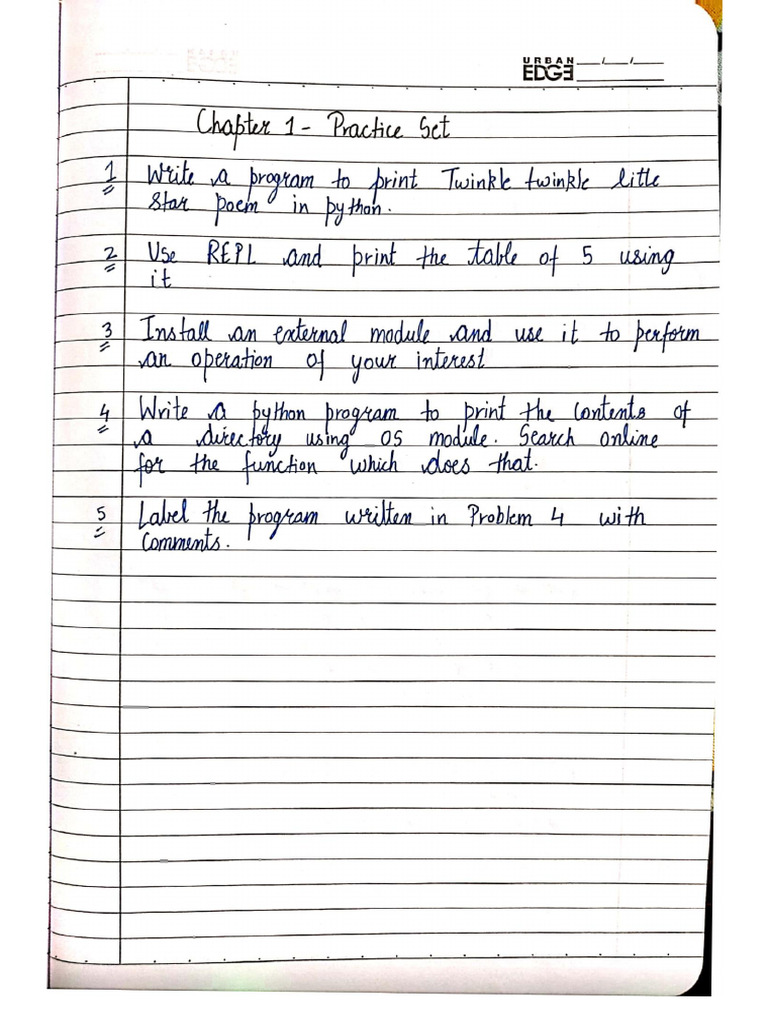 URBAN
EDGE
Chapter 1 - Practice Set
1 Write a program to print Twinkle twinkle litle
Star poem in python.
2 Use REPL and print the table of 5 using
it
3 Install an external module and use it to perform
an operation of your interest
4 Write a python program to print the contents of
a directory using os module. Search online
for the function which does that.
5 Label the program written in Problem 4 with
Comments.